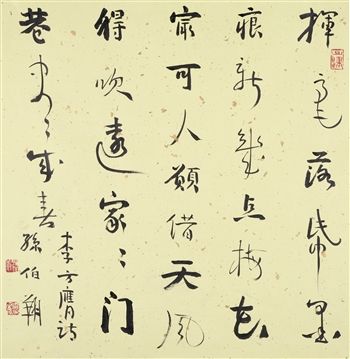 揮毫落紙墨
痕新幾点梅花
㝡可人願借天风
得吹遠家〻门
巷尽成春
李方膺詩
孫伯翔